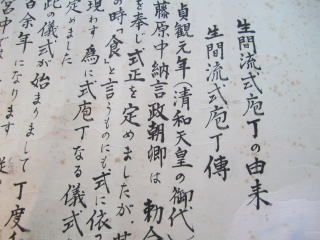 生間流式庖丁の由来
生間流式庖丁傳
貞観元年(清和天皇の御代
藤原中納言政朝卿は 勅令
を奉じ式正を定めましたが 其
の時「食」と言うものにも式に依
現わす 為に式庖丁なる儀式
定めました
此の儀式が始まりまして 丁度
百余年になります
宮中で